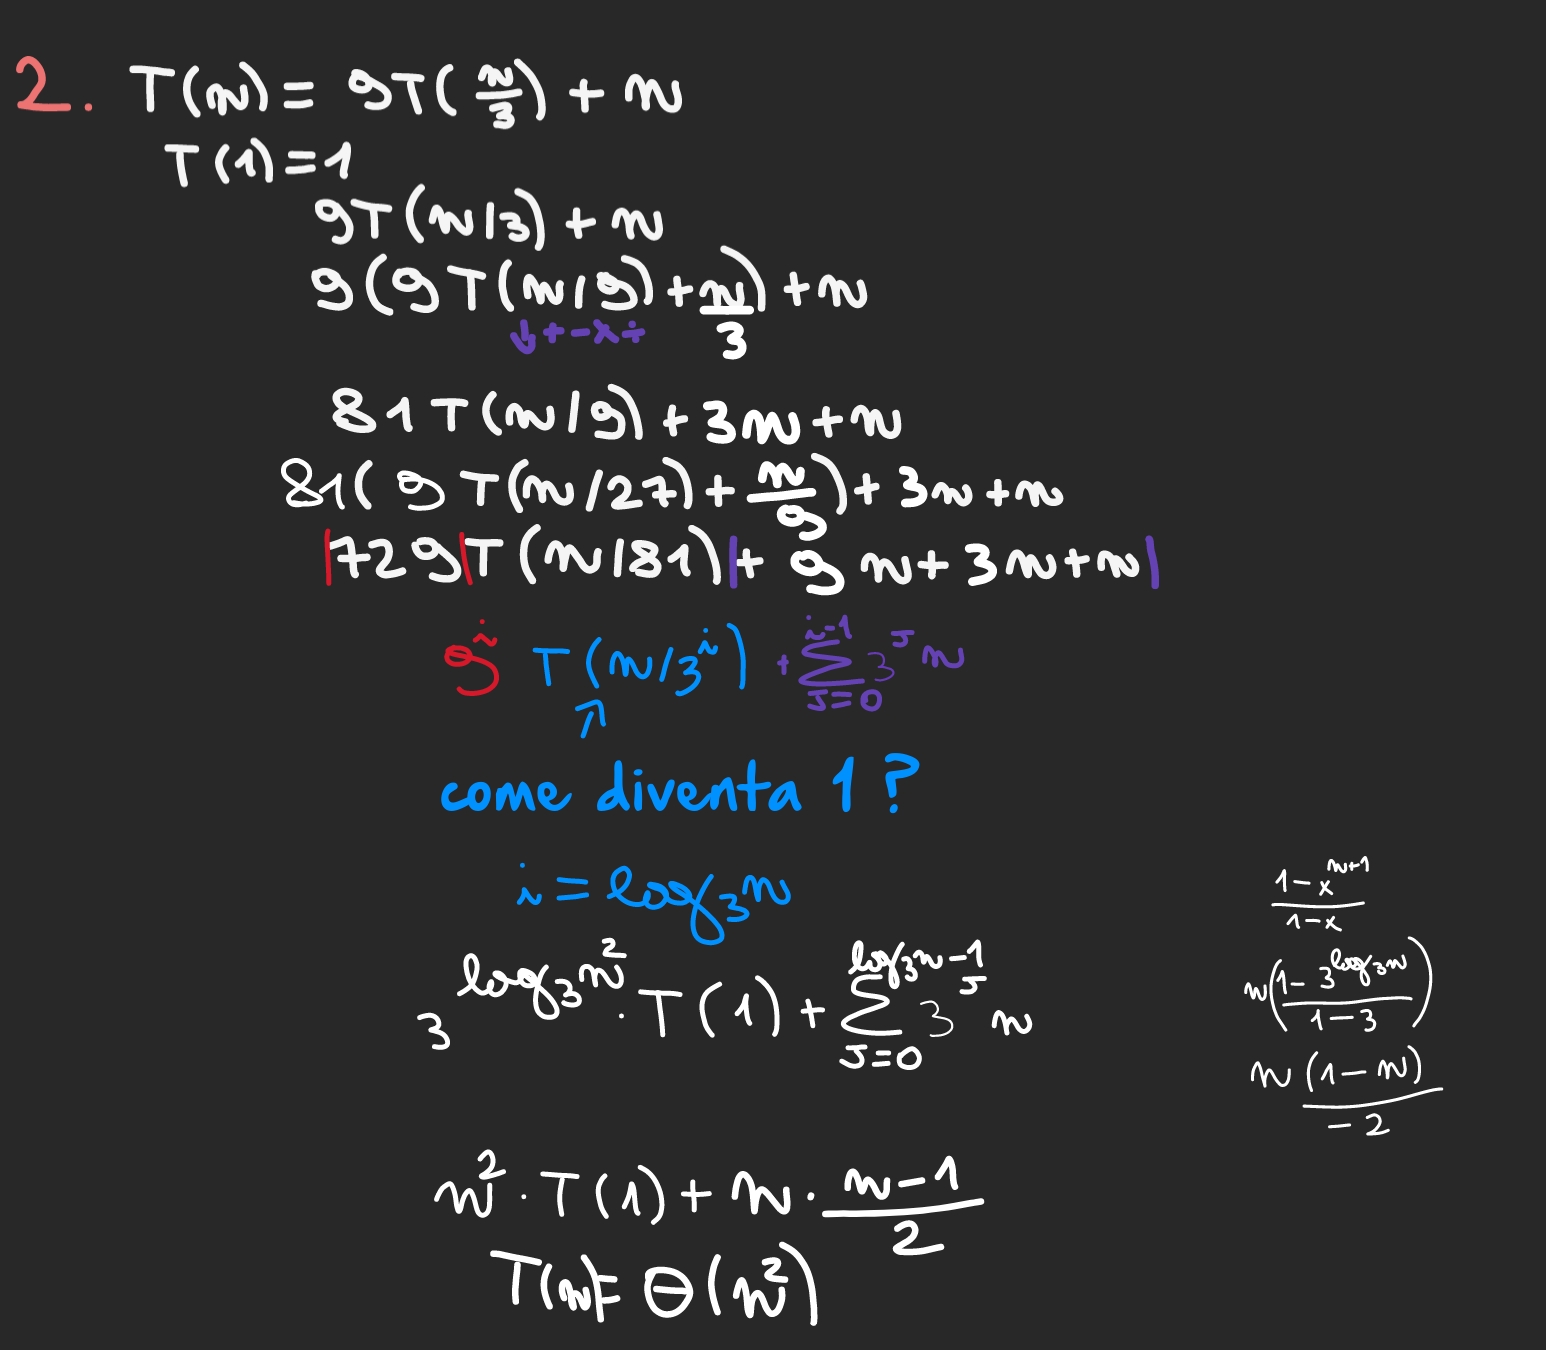 2. T(n) = 9T(n/3) + n
T(1)=1
9T(n/3) + n
9(9T(n/9) + n/3) + n
↓ + - x ÷
81T(n/9) + 3n + n
81(9T(n/27) + n/9) + 3n + n
|729|T(n/81)|+ 9n + 3n + n|
9^i T(n/3^i) + ∑_{J=0}^{i-1} 3^J n
↗
come diventa 1?
i = log₃n
3^{log₃n²} · T(1) + ∑_{J=0}^{log₃n-1} 3^J n
n² · T(1) + n · (n-1)/2
T(n)= Θ(n²)
(1-x^{n+1})/(1-x)
n((1-3^{log₃n})/(1-3))
n (1-n)/-2